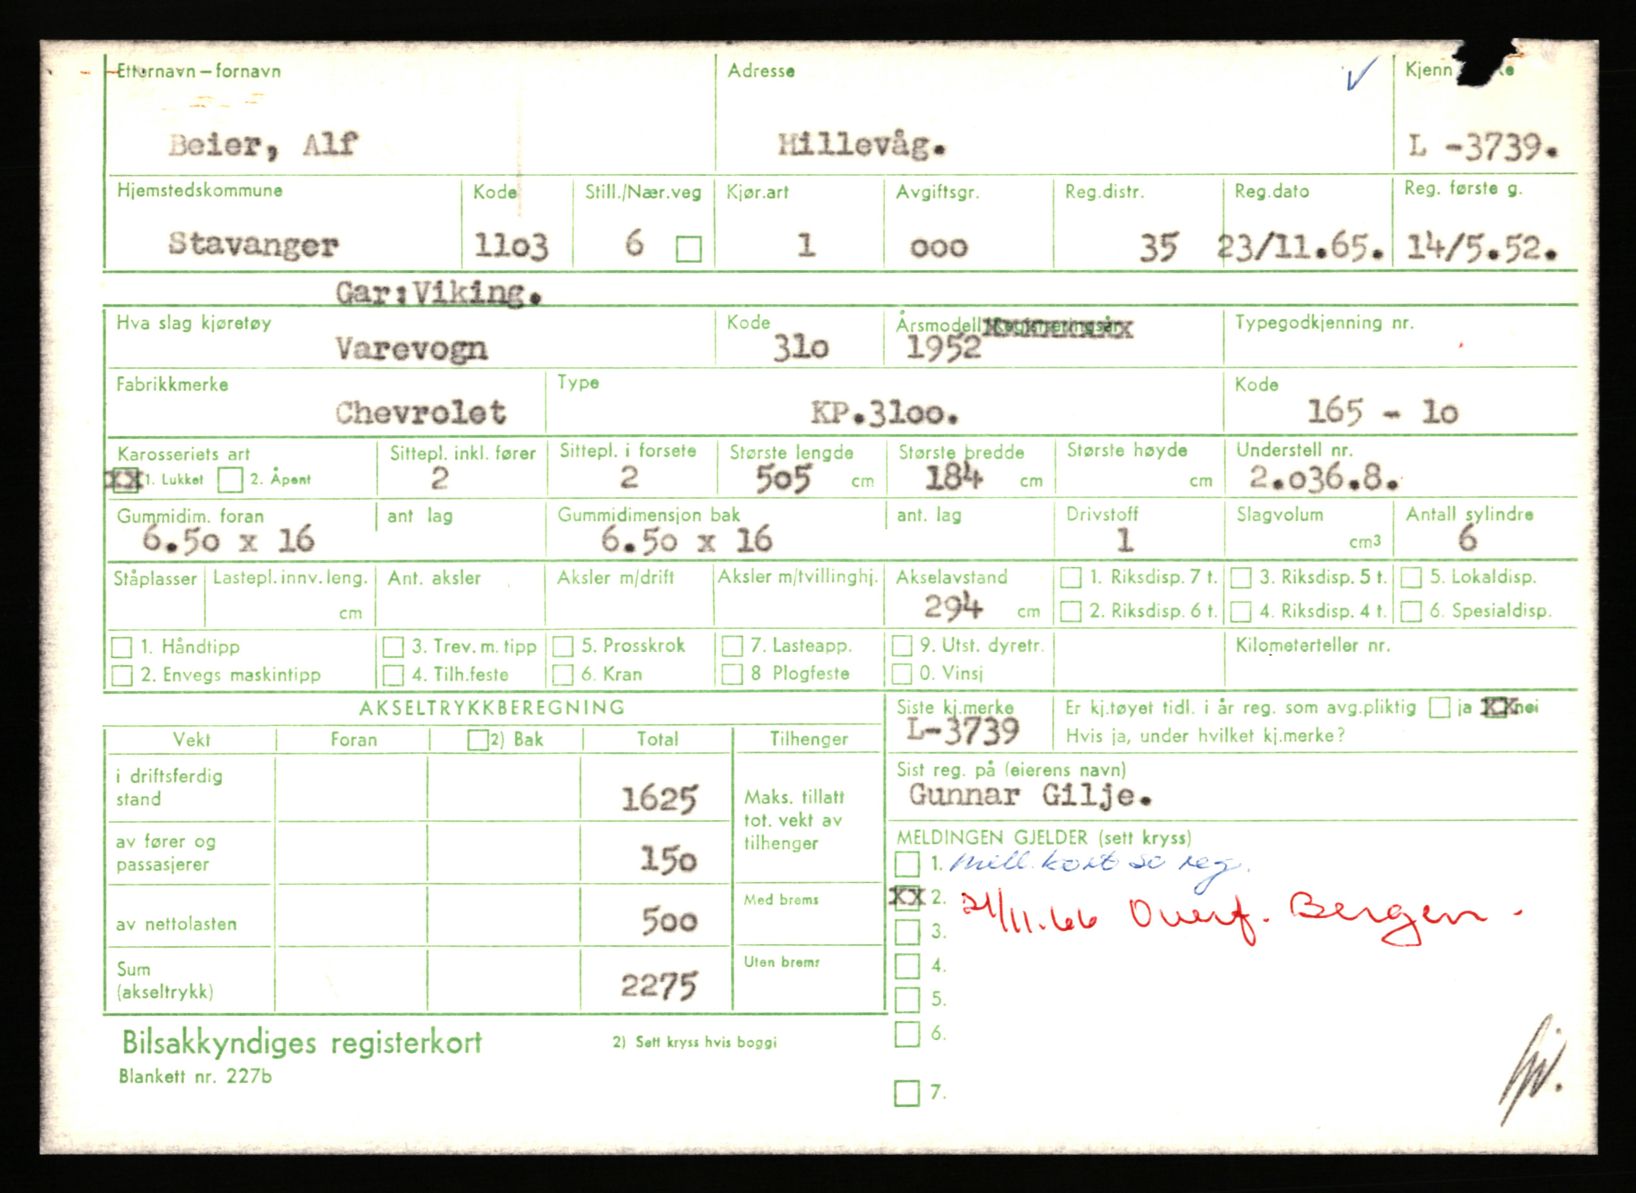 Etternavn – fornavn Adresse Kjenn ke
Beier, Alf Hillevåg. L -3739.
Hjemstedskommune Kode Still./Nær.veg Kjør.art Avgiftsgr. Reg.distr. Reg.dato Reg. første g.
Stavanger 11o3 6 1 ooo 35 23/11.65. 14/5.52.
Gar:Viking.
Hva slag kjøretøy Kode Årsmodell Registreringsår Typegodkjenning nr.
Varevogn 31o 1952
Fabrikkmerke Type Kode
Chevrolet KP.31oo. 165 - 1o
Karosseriets art Sittepl. inkl. fører Sittepl. i forsete Største lengde Største bredde Største høyde Understell nr.
XX 1. Lukket 2. Åpent 2 2 5o5 cm 184 cm cm 2.o36.8.
Gummidim. foran ant lag Gummidimensjon bak ant. lag Drivstoff Slagvolum Antall sylindre
6.5o x 16 6.5o x 16 1 cm3 6
Ståplasser Lastepl. innv. leng. Ant. aksler Aksler m/drift Aksler m/tvillinghj. Akselavstand 1. Riksdisp. 7 t. 3. Riksdisp. 5 t. 5. Lokaldisp.
cm 294 cm 2. Riksdisp. 6 t. 4. Riksdisp. 4 t. 6. Spesialdisp.
1. Håndtipp 3. Trev. m. tipp 5. Prosskrok 7. Lasteapp. 9. Utst. dyretr. Kilometerteller nr.
2. Envegs maskintipp 4. Tilh.feste 6. Kran 8 Plogfeste 0. Vinsj
AKSELTRYKKBEREGNING Siste kj.merke Er kj.tøyet tidl. i år reg. som avg.pliktig ja XX nei
L-3739 Hvis ja, under hvilket kj.merke?
Vekt Foran 2) Bak Total Tilhenger
i driftsferdig stand 1625
Maks. tillatt tot. vekt av tilhenger
Sist reg. på (eierens navn)
Gunnar Gilje.
av fører og passasjerer 15o
MELDINGEN GJELDER (sett kryss)
1. mell. kort so reg.
av nettolasten 5oo Med brems
XX 2. 21/11.66 Overf. Bergen.
3.
Sum (akseltrykk) 2275 Uten brems
4.
5.
6.
7.
Bilsakkyndiges registerkort 2) Sett kryss hvis boggi
Blankett nr. 227b